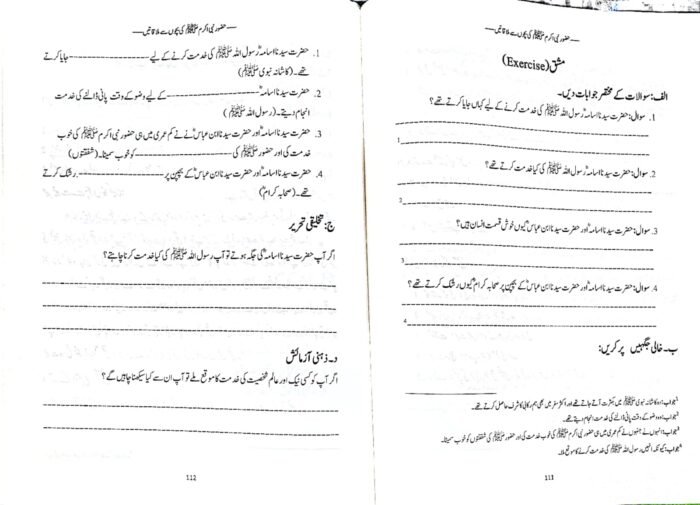 — حضور نبی اکرم ﷺ کی بچوں سے ملاقاتیں —
مشق (Exercise)
الف: سوالات کے مختصر جوابات دیں۔
1. سوال: حضرت سیدنا اسامہؓ رسول اللہ ﷺ کی خدمت کرنے کے لیے کہاں جایا کرتے تھے؟
1
2. سوال: حضرت سیدنا اسامہؓ رسول اللہ ﷺ کی کیا خدمت کرتے تھے؟
2
3. سوال: حضرت سیدنا اسامہؓ اور حضرت سیدنا ابن عباسؓ کیوں خوش قسمت انسان ہیں؟
3
4. سوال: حضرت سیدنا اسامہؓ اور حضرت سیدنا ابن عباسؓ کے بچپن پر صحابہ کرامؓ کیوں رشک کرتے تھے؟
4
ب۔ خالی جگہیں پر کریں:
1 جواب: وہ کاشانہ نبوی ﷺ میں بکثرت آتے جاتے تھے اور اکثر سفر میں بھی ہم رکابی کا شرف حاصل کرتے تھے۔
2 جواب: وہ وضو کے وقت پانی ڈالنے کی خدمت انجام دیتے تھے۔
3 جواب: انہوں نے جنہوں نے کم عمری میں ہی حضور نبی اکرم ﷺ کی خوب خدمت کی اور حضور ﷺ کی شفقتوں کو خوب سمیٹا۔
4 جواب: کیونکہ انہیں رسول اللہ ﷺ کی خدمت کرنے کا موقع ملا۔
111
— حضور نبی اکرم ﷺ کی بچوں سے ملاقاتیں —
1. حضرت سیدنا اسامہؓ رسول اللہ ﷺ کی خدمت کرنے کے لیے ---------- جایا کرتے
تھے۔ (کاشانہ نبوی ﷺ)
2. حضرت سیدنا اسامہؓ ---------- کے لیے وضو کے وقت پانی ڈالنے کی خدمت
انجام دیتے۔ (رسول اللہ ﷺ)
3. حضرت سیدنا اسامہؓ اور حضرت سیدنا ابن عباسؓ نے کم عمری میں ہی حضور نبی اکرم ﷺ کی خوب
خدمت کی اور حضور ﷺ کی ---------- کو خوب سمیٹا۔ (شفقتوں)
4. حضرت سیدنا اسامہؓ اور حضرت سیدنا ابن عباسؓ کے بچپن پر ---------- رشک کرتے
تھے۔ (صحابہ کرامؓ)
ج: تخلیقی تحریر
اگر آپ حضرت سیدنا اسامہؓ کی جگہ ہوتے تو آپ رسول اللہ ﷺ کی کیا خدمت کرنا چاہتے؟
د۔ ذہنی آزمائش
اگر آپ کو کسی نیک اور عالم شخصیت کی خدمت کا موقع ملے تو آپ ان سے کیا سیکھنا چاہیں گے؟
112